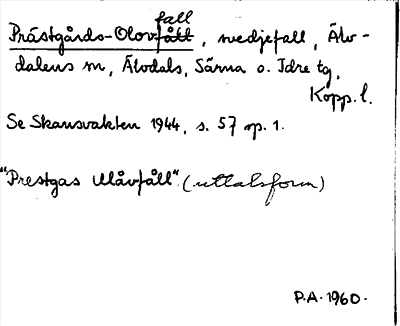 fall
Prästgårds-Olovfått, svedjefall, Älv-
dalens sn, Älvdals, Särna o. Idre tg,
Kopp. l.
Se Skansvakten 1944, s. 57 sp. 1.
"Prestgas Ulåvfåll" (uttalsform)
P.A. 1960.